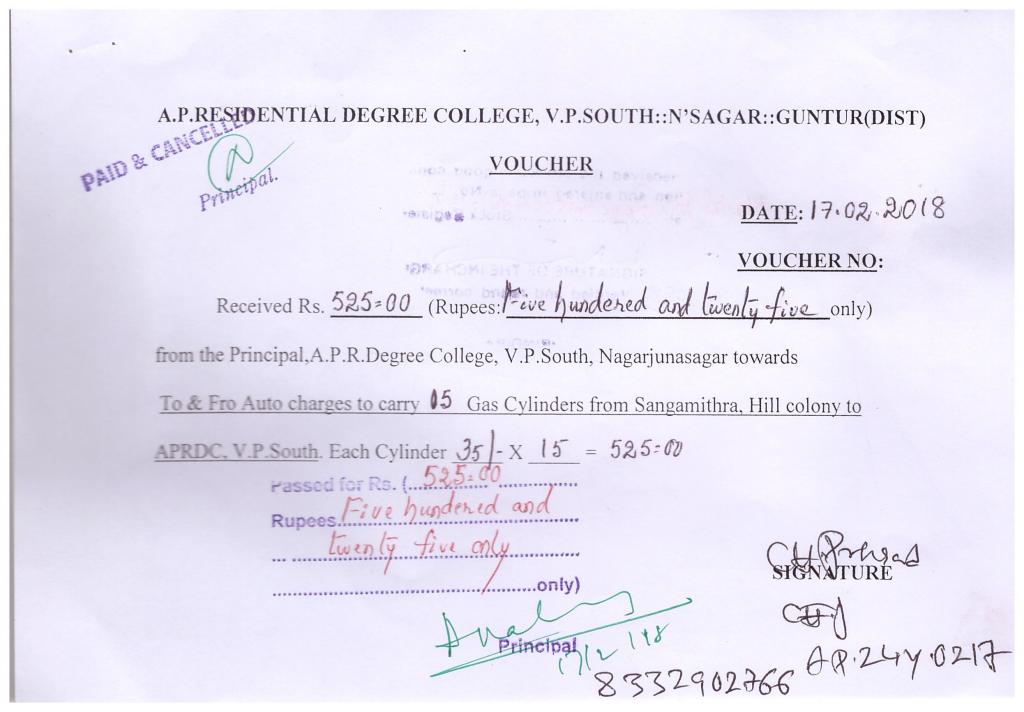 A.P.RESIDENTIAL DEGREE COLLEGE, V.P.SOUTH::N'SAGAR::GUNTUR(DIST)
PAID & CANCELLED
Principal.
VOUCHER
DATE: 17.02.2018
VOUCHER NO:
Received Rs. 525=00 (Rupees: Five hundered and twenty five only)
from the Principal,A.P.R.Degree College, V.P.South, Nagarjunasagar towards
To & Fro Auto charges to carry 15 Gas Cylinders from Sangamithra, Hill colony to
APRDC, V.P.South. Each Cylinder 35/- X 15 = 525=00
Passed for Rs. (....525=00....
Rupees Five hundered and
twenty five only
only)
SIGNATURE
Principal
17/2/18
8332902766
AP.24Y.0217